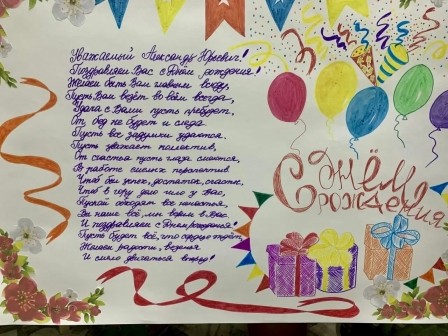 Уважаемый Александр Юрьевич!
Поздравляем Вас с Днём рождения!
Желаем быть Вам главным всюду,
Пусть Вам везёт во всём всегда,
Удача с Вами пусть пребудет,
От бед не будет и следа.
Пусть все задумки удаются,
Пусть уважает коллектив,
От счастья пусть глаза смеются,
В работе сильных перспектив.
Чтоб был успех, достаток, счастье,
Чтоб в гору дело шло у Вас,
Пускай обходят все ненастья,
Вы наше всё, мы верим в Вас.
И поздравляем с Днём рожденья!
Пусть будет всё, что сердце ждёт,
Желаем радости, везенья
И смело двигаться вперёд!
С Днём
рождения